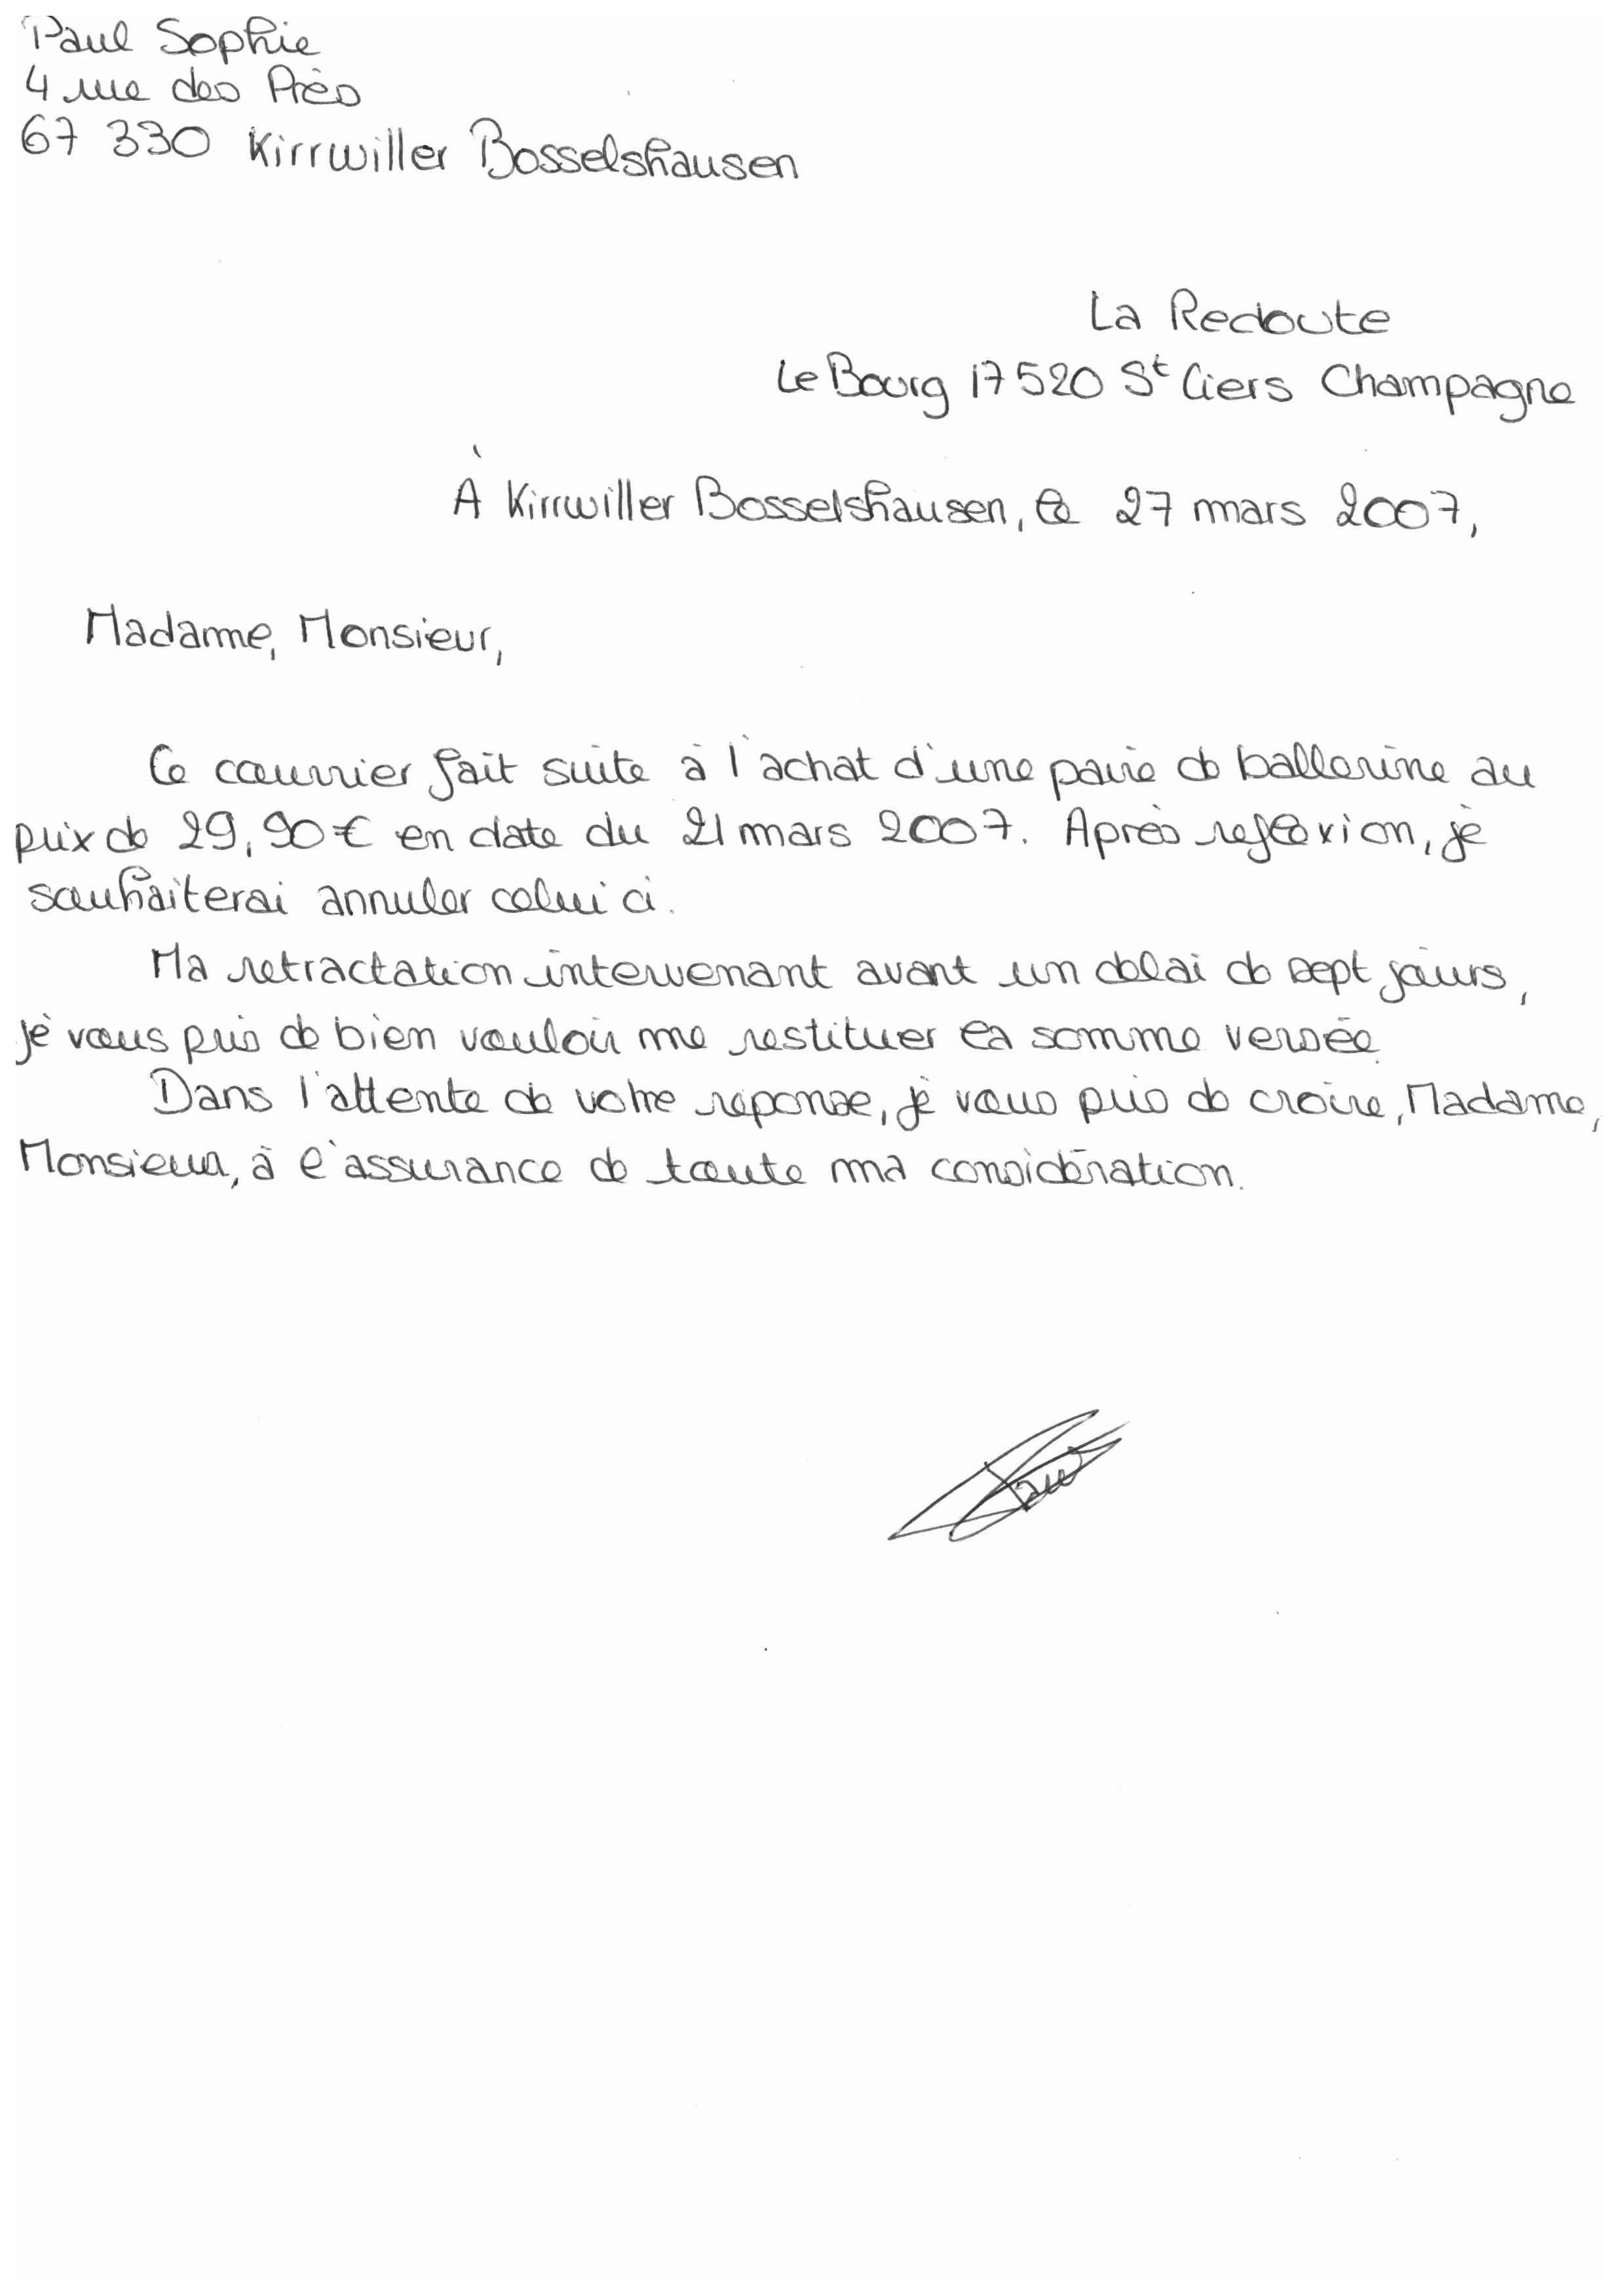 Paul Sophie
4 rue des Près
67 330 Kirrwiller Bosselshausen
La Redoute
Le Bourg 17520 St Ciers Champagne
À Kirrwiller Bosselshausen, le 27 mars 2007,
Madame, Monsieur,
Ce courrier fait suite à l'achat d'une paire de ballerine au
prix de 29,90€ en date du 21 mars 2007. Après reflexion, je
souhaiterai annuler celui ci.
Ma retractation intervenant avant un delai de sept jours,
je vous prie de bien vouloir me restituer la somme versée.
Dans l'attente de votre reponse, je vous prie de croire, Madame,
Monsieur, à l'assurance de toute ma considération.
Paul